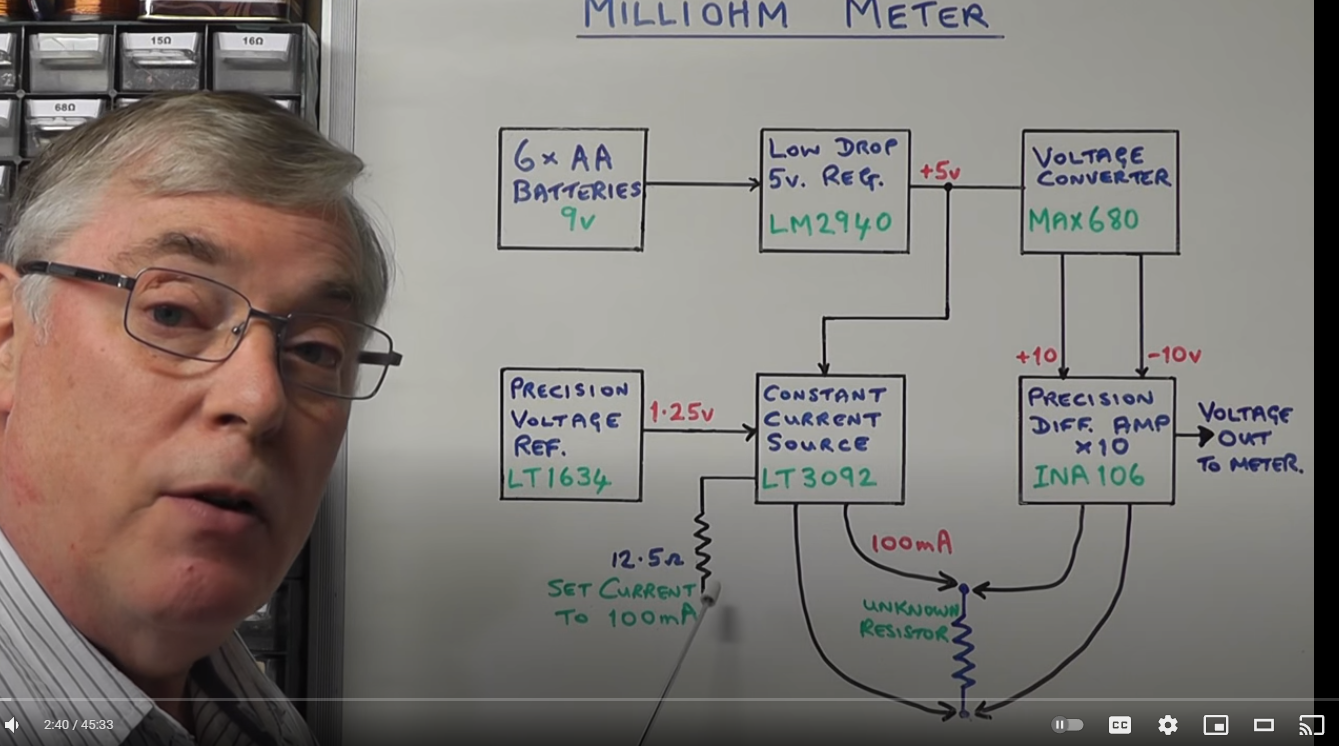 MILLIOHM METER
15Ω
16Ω
68Ω
6x AA
BATTERIES
9v
LOW DROP
5v. REG.
LM2940
+5v
VOLTAGE
CONVERTER
MAX680
+10
-10v
PRECISION
VOLTAGE
REF.
LT1634
1.25v
CONSTANT
CURRENT
SOURCE
LT3092
PRECISION
DIFF. AMP
x10
INA106
VOLTAGE
OUT
TO METER.
12.5Ω
SET CURRENT
TO 100mA
100mA
UNKNOWN
RESISTOR
2:40 / 45:33
CC